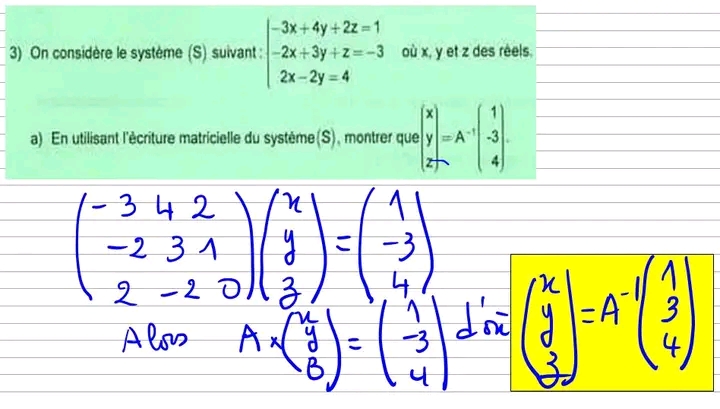 3) On considère le système (S) suivant : { -3x + 4y + 2z = 1
-2x + 3y + z = -3
2x - 2y = 4
où x, y et z des réels.
a) En utilisant l'écriture matricielle du système (S), montrer que (x y z) = A⁻¹ (1 -3 4).
(-3 4 2) (x) = (1)
(-2 3 1) (y) = (-3)
(2 -2 0) (z) = (4)
Alors A × (x y z) = (1 -3 4) d'où (x y z) = A⁻¹ (1 3 4)